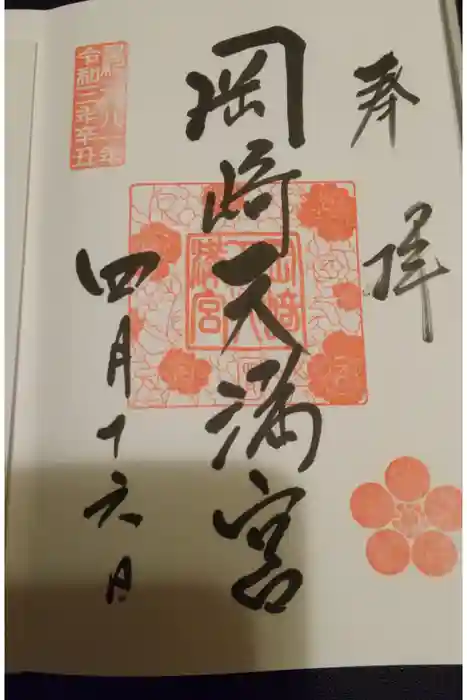 奉拝
岡崎天満宮
岡崎天満宮
令和三年辛丑
四月十六日